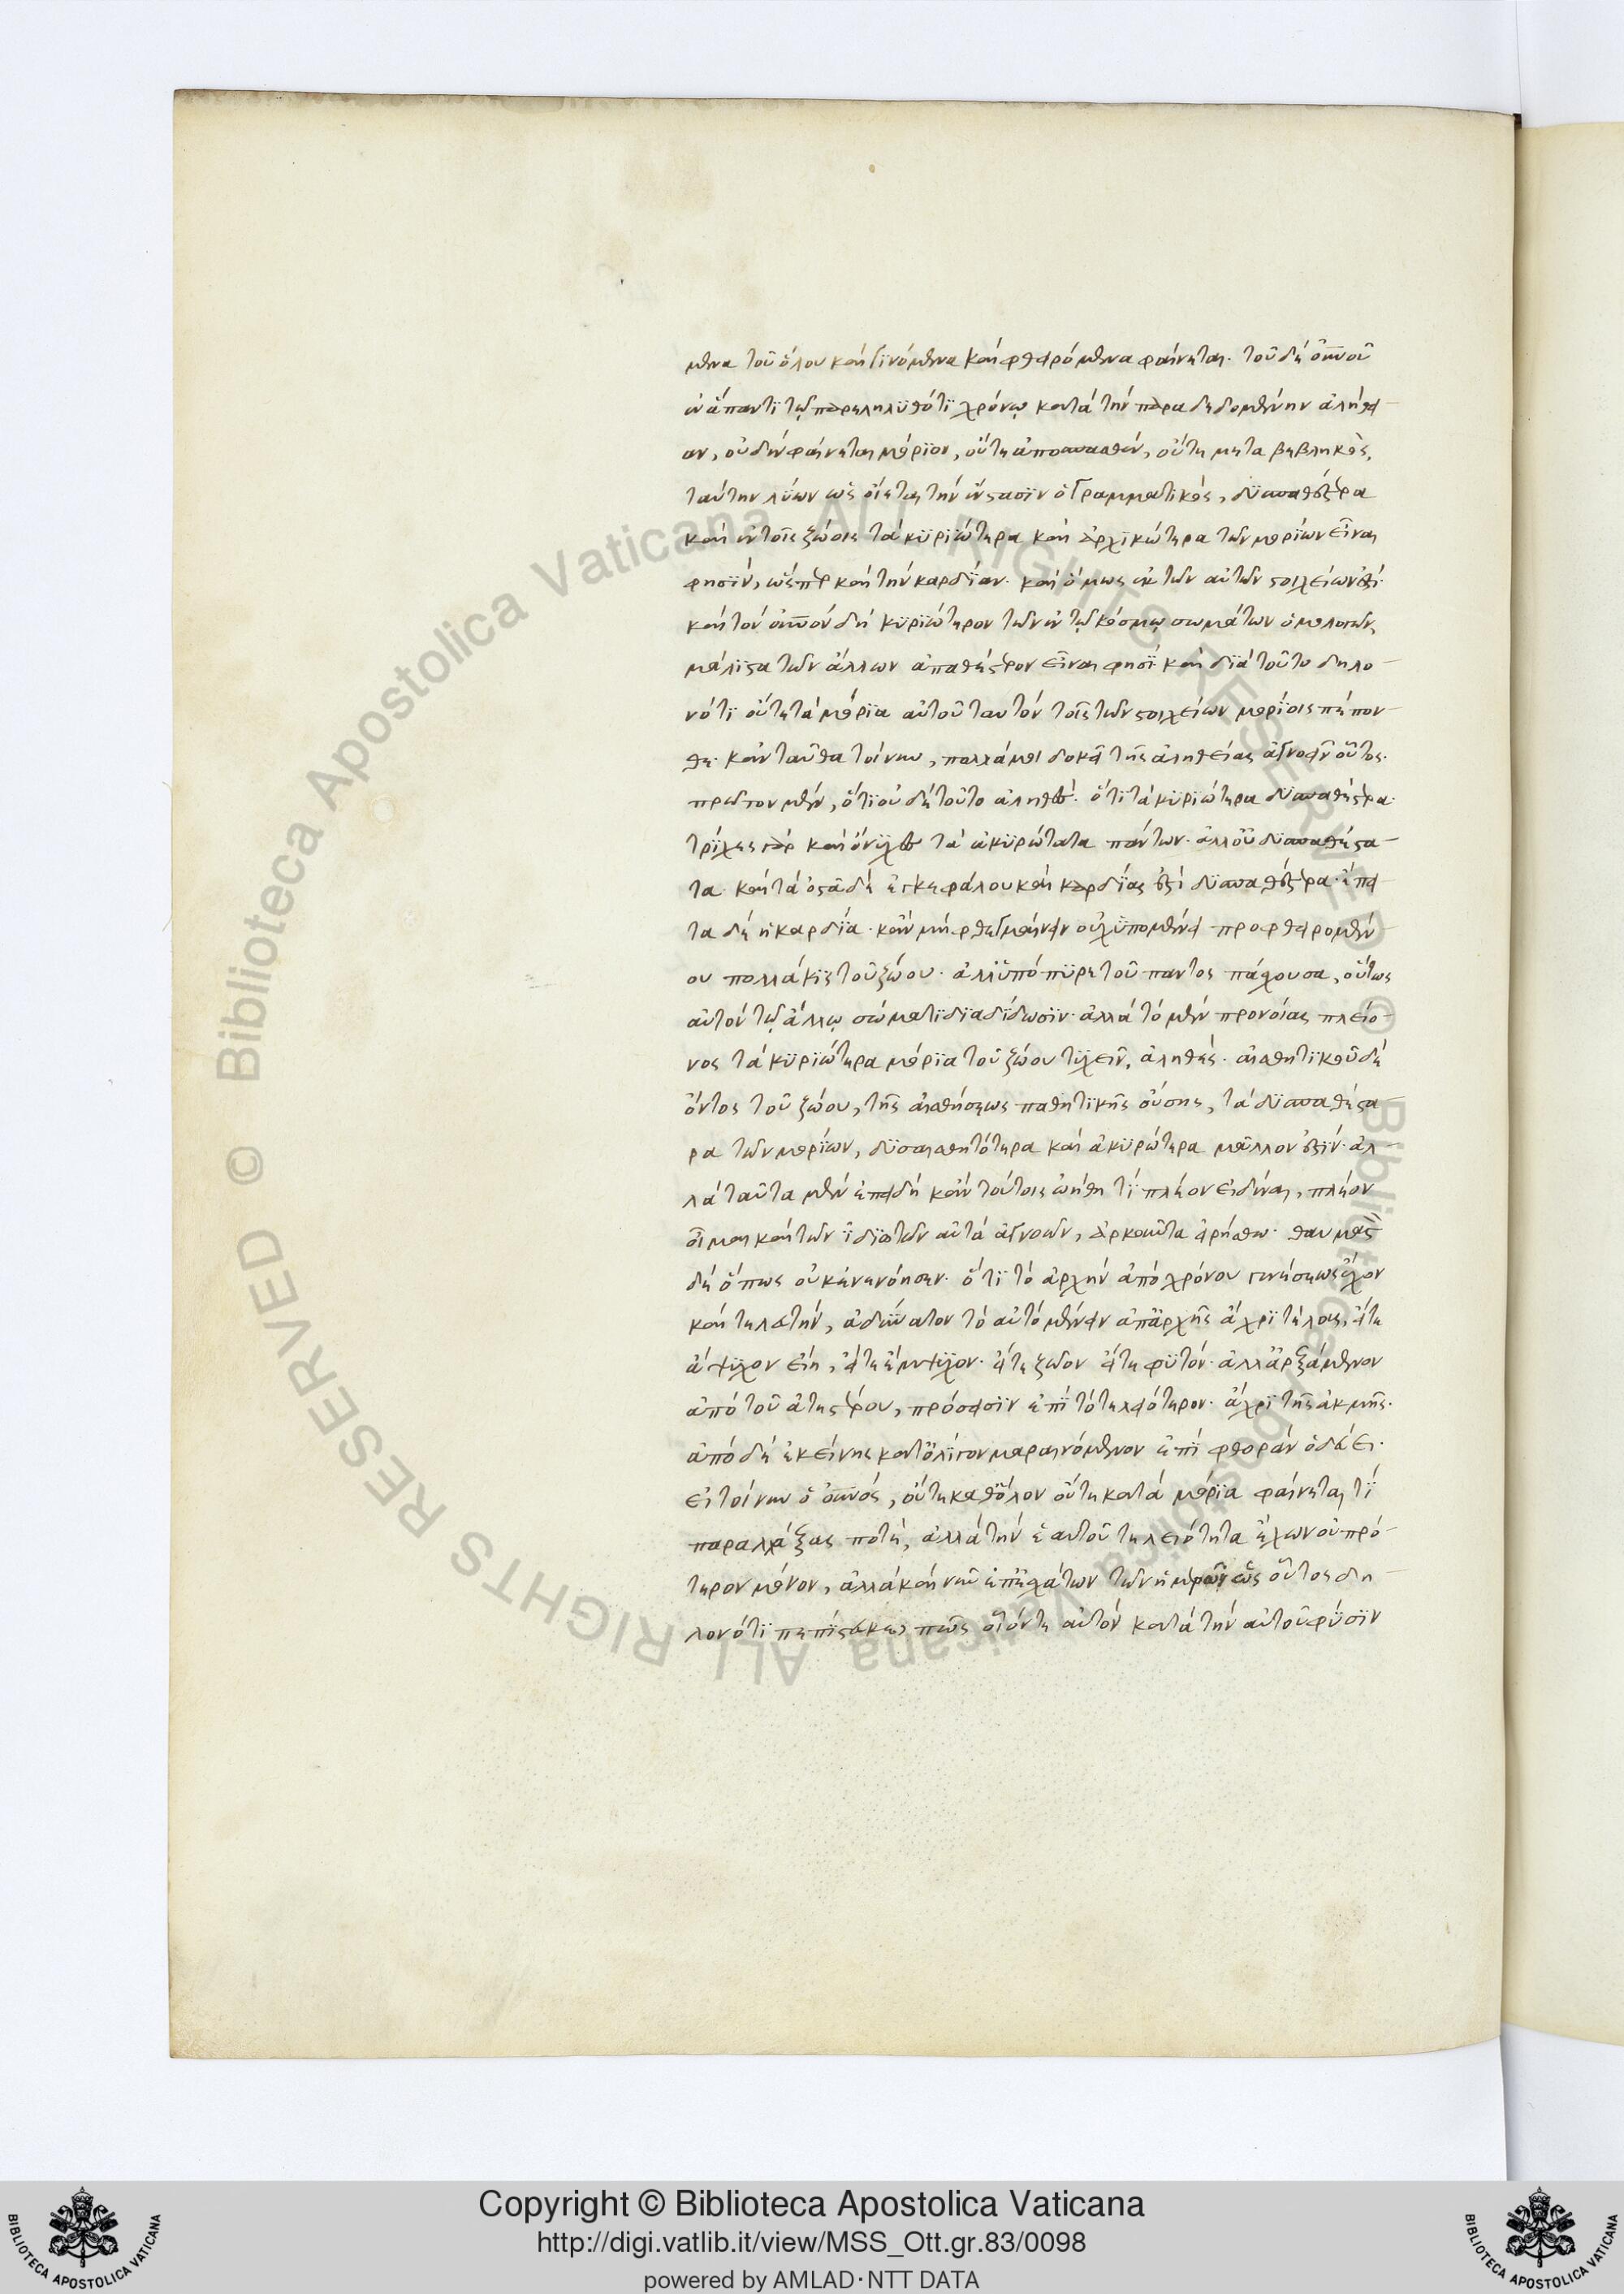 μενα τοῦ ὅλου καὶ γινόμενα καὶ φθειρόμενα φαίνεται. τοῦ δὲ οὐνοῦ
ἐν ἅπαντι τῷ παρεληλυθότι χρόνῳ κατὰ τὴν παραδεδομένην ἀλήθει
αν, οὐδὲν φαίνεται μόριον, οὔτε ἀποσπασθὲν, οὔτε μεταβεβληκὸς,
ταύτην λύων ὡς οἴεται τὴν ἔνστασιν ὁ Γραμματικὸς, δυσπαθέστερα
καὶ ἐν τοῖς ζώοις τὰ κυριώτερα καὶ ἀρχικώτερα τῶν μορίων εἶναι
φησὶν, ὥσπερ καὶ τὴν καρδίαν. καὶ ὅμως ἐκ τῶν αὐτῶν στοιχείων ἐστί.
καὶ τὸν οὐνὸν δὴ κυριώτερον τῶν ἐν τῷ κόσμῳ σωμάτων ὁμολογῶν,
μάλιστα τῶν ἄλλων ἀπαθέστερον εἶναι φησὶ καὶ διὰ τοῦτο δηλο
νότι οὔτε τὰ μόρια αὐτοῦ ταυτὸν τοῖς τῶν στοιχείων μορίοις πέπον
θε. κἀνταῦθα τοίνυν, πολλά μοι δοκεῖ τῆς ἀληθείας ἀγνοεῖν οὗτος.
πρῶτον μὲν, ὅτι οὐδὲ τοῦτο ἀληθές. ὅτι τὰ κυριώτερα δυσπαθέστερα.
τρίχες γὰρ καὶ ὄνυχες τὰ ἀκυρώτατα πάντων. ἀλλ' οὖν δυσπαθέστα
τα. καὶ τὰ ὀστᾶ δὲ ἐγκεφάλου καὶ καρδίας ἐστὶ δυσπαθέστερα. ἔπει
τα δὲ ἡ καρδία. κἂν μὴ φλεγμαίνειν οὐχ ὑπομένει προφθειρομέν
ου πολλάκις τοῦ ζώου. ἀλλ' ὑπὸ πυρετοῦ παντὸς πάσχουσα, οὕτως
αὐτὸν τῷ ἄλλῳ σώματι διαδίδωσιν. ἀλλὰ τὸ μὲν προνοίας πλείο
νος τὰ κυριώτερα μόρια τοῦ ζώου τυχεῖν, ἀληθές. αἰσθητικοῦ δὲ
ὄντος τοῦ ζώου, τῆς αἰσθήσεως παθητικῆς οὔσης, τὰ δυσπαθέστε
ρα τῶν μορίων, δυσαισθητότερα καὶ ἀκυρώτερα μᾶλλον ἐστίν. ἀλ
λὰ ταῦτα μὲν ἐπειδὴ κἀν τούτοις ὠήθη τὶ πλέον εἰδέναι, πλέον
οἶμαι καὶ τῶν ἰδιωτῶν αὐτὰ ἀγνοῶν, ἀρκοῦντα εἰρήσθω. θαυμαστὸν
δὲ ὅπως οὐκ ἐνενόησεν. ὅτι τὸ ἀρχὴν ἀπὸ χρόνου γενέσεως ἔχον
καὶ τελευτὴν, ἀδύνατον τὸ αὐτὸ μένειν ἀπ' ἀρχῆς ἄχρι τέλους, εἴτε
ἄψυχον εἴη, εἴτε ἔμψυχον. εἴτε ζῶον εἴτε φυτόν. ἀλλ' ἀρξάμενον
ἀπὸ τοῦ ἀτελεστέρου, πρόσεισιν ἐπὶ τὸ τελειότερον. ἄχρι τῆς ἀκμῆς.
ἀπὸ δὲ ἐκείνης κατ' ὀλίγον μαραινόμενον ἐπὶ φθορὰν ὁδεύει.
εἰ τοίνυν ὁ οὐνὸς, οὔτε καθ' ὅλον οὔτε κατὰ μόρια φαίνεται τὶ
παραλλάξας ποτὲ, ἀλλὰ τὴν ἑαυτοῦ τελειότητα ἔχων οὐ πρό
τερον μόνον, ἀλλὰ καὶ νῦν ἐπ' ἐσχάτων τῶν ἡμερῶν ὡς οὗτος δη
λονότι πεπίστευκε, πῶς οἷόν τε αὐτὸν κατὰ τὴν αὐτοῦ φύσιν
Copyright © Biblioteca Apostolica Vaticana
http://digi.vatlib.it/view/MSS_Ott.gr.83/0098
powered by AMLAD·NTT DATA